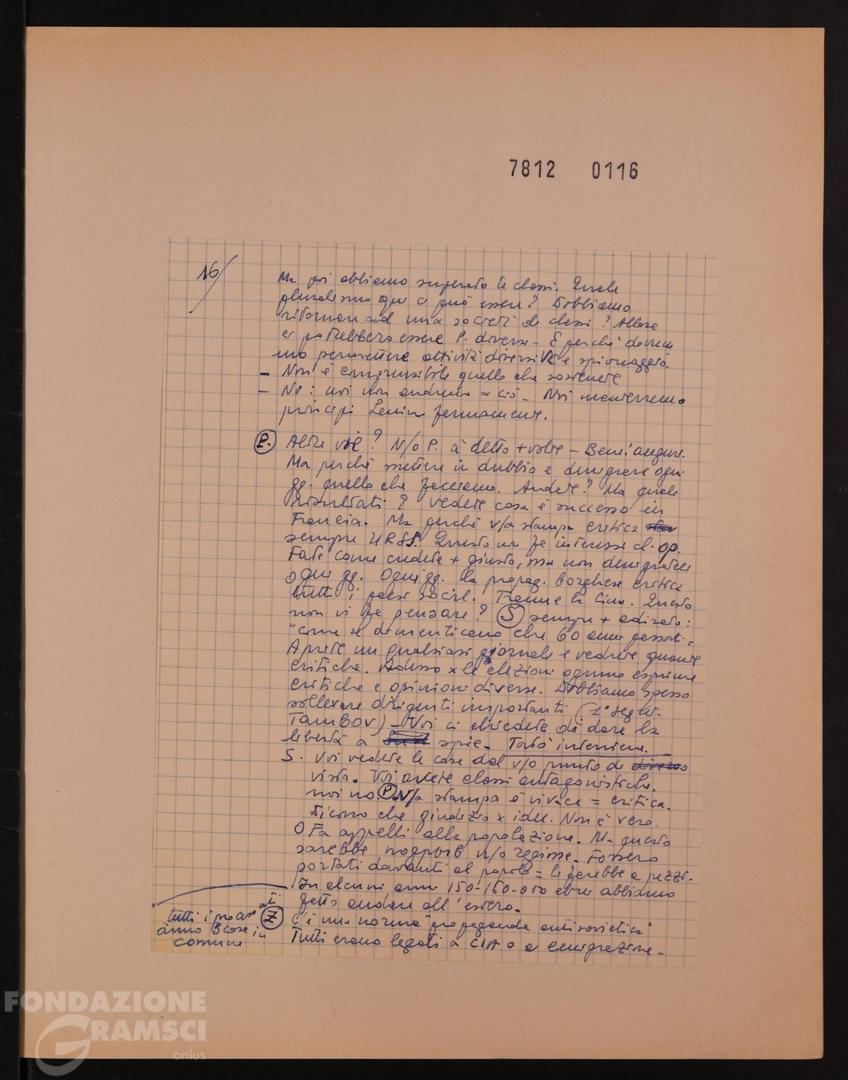 7812 0116
16/
Ma poi abbiamo superato le classi. Quale
pluralismo qui ci può essere? Dobbiamo
ritornare ad una società di classi? Allora
ci potrebbero essere P. diversi - E perché dovrem
mo permettere attività diversive e spionaggio.
- Non è comprensibile quello che sostenete
- No: noi non andremo a ciò - Noi manterremo
principi Lenin fermamente.
P. Altre vie? N/o P. à detto + volte - Beni augure.
Ma perché mettere in dubbio e denigrare ogni
gg. quello che facciamo. Andate? Ma quali
risultati? vedete cosa è successo in
Francia. Ma perché v/a stampa critica
sempre URSS. Questo un fa interessi cl. op.
Fate come credete + giusto, ma non denigrateci
ogni gg. Ogni gg. la propag. borghese critica
tutti i paesi social. Tranne la Cina. Questo
non vi fa pensare? S sempre + adirato:
"come se dimenticano che 60 anni passati =
Aprite un qualsiasi giornale e vedrete quante
critiche. Adesso x le elezioni ognuno esprime
critiche e opinioni diverse. Dobbiamo spesso
sollevare dirigenti importanti (1° segr.
Tambov) - Voi ci chiedete di dare la
libertà a spie. Torto interviene.
S. Voi vedete le cose dal v/o punto di
vista. Voi avete classi antagonistiche.
noi no P N/a stampa è vivace = critica.
Dicono che giudizio x idee. Non è vero.
O Fa appelli alla popolazione. Ma questo
sarebbe n/o regime. Fossero
portati davanti al popolo = li farebbe a pezzi.
In alcuni anni 150-160.000 ebrei abbiamo
fatto andare all'estero.
Z C'è una norma "propaganda antisovietica"
Tutti erano legati a CIA o a emigrazione -
tutti i
anno 3 cose in
comune
FONDAZIONE
GRAMSCI
onlus